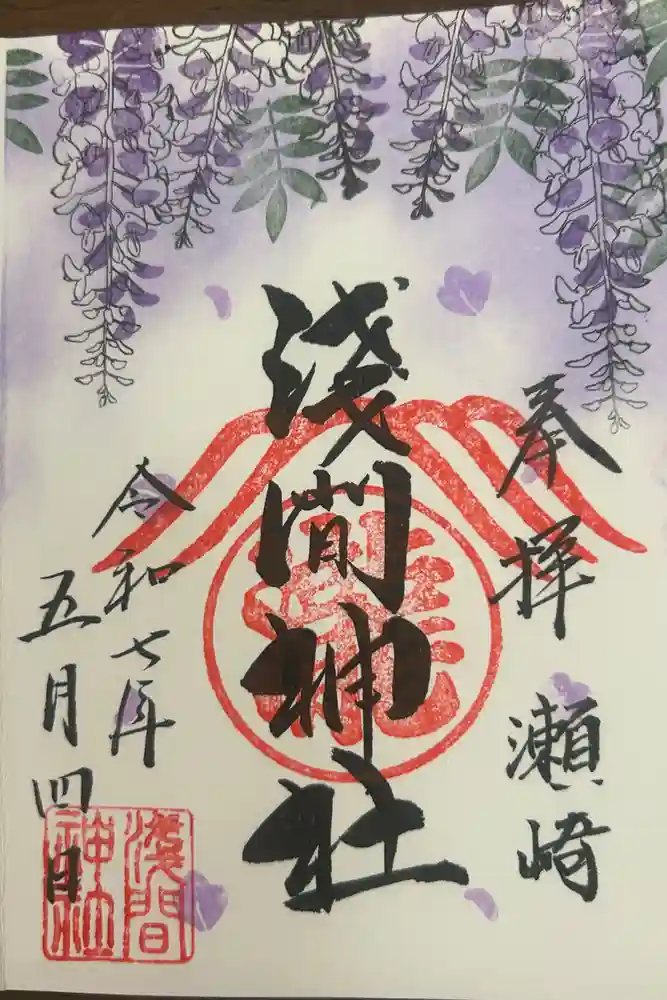 奉拝 瀬崎
浅間神社
令和七年
五月四日
淺間
神社